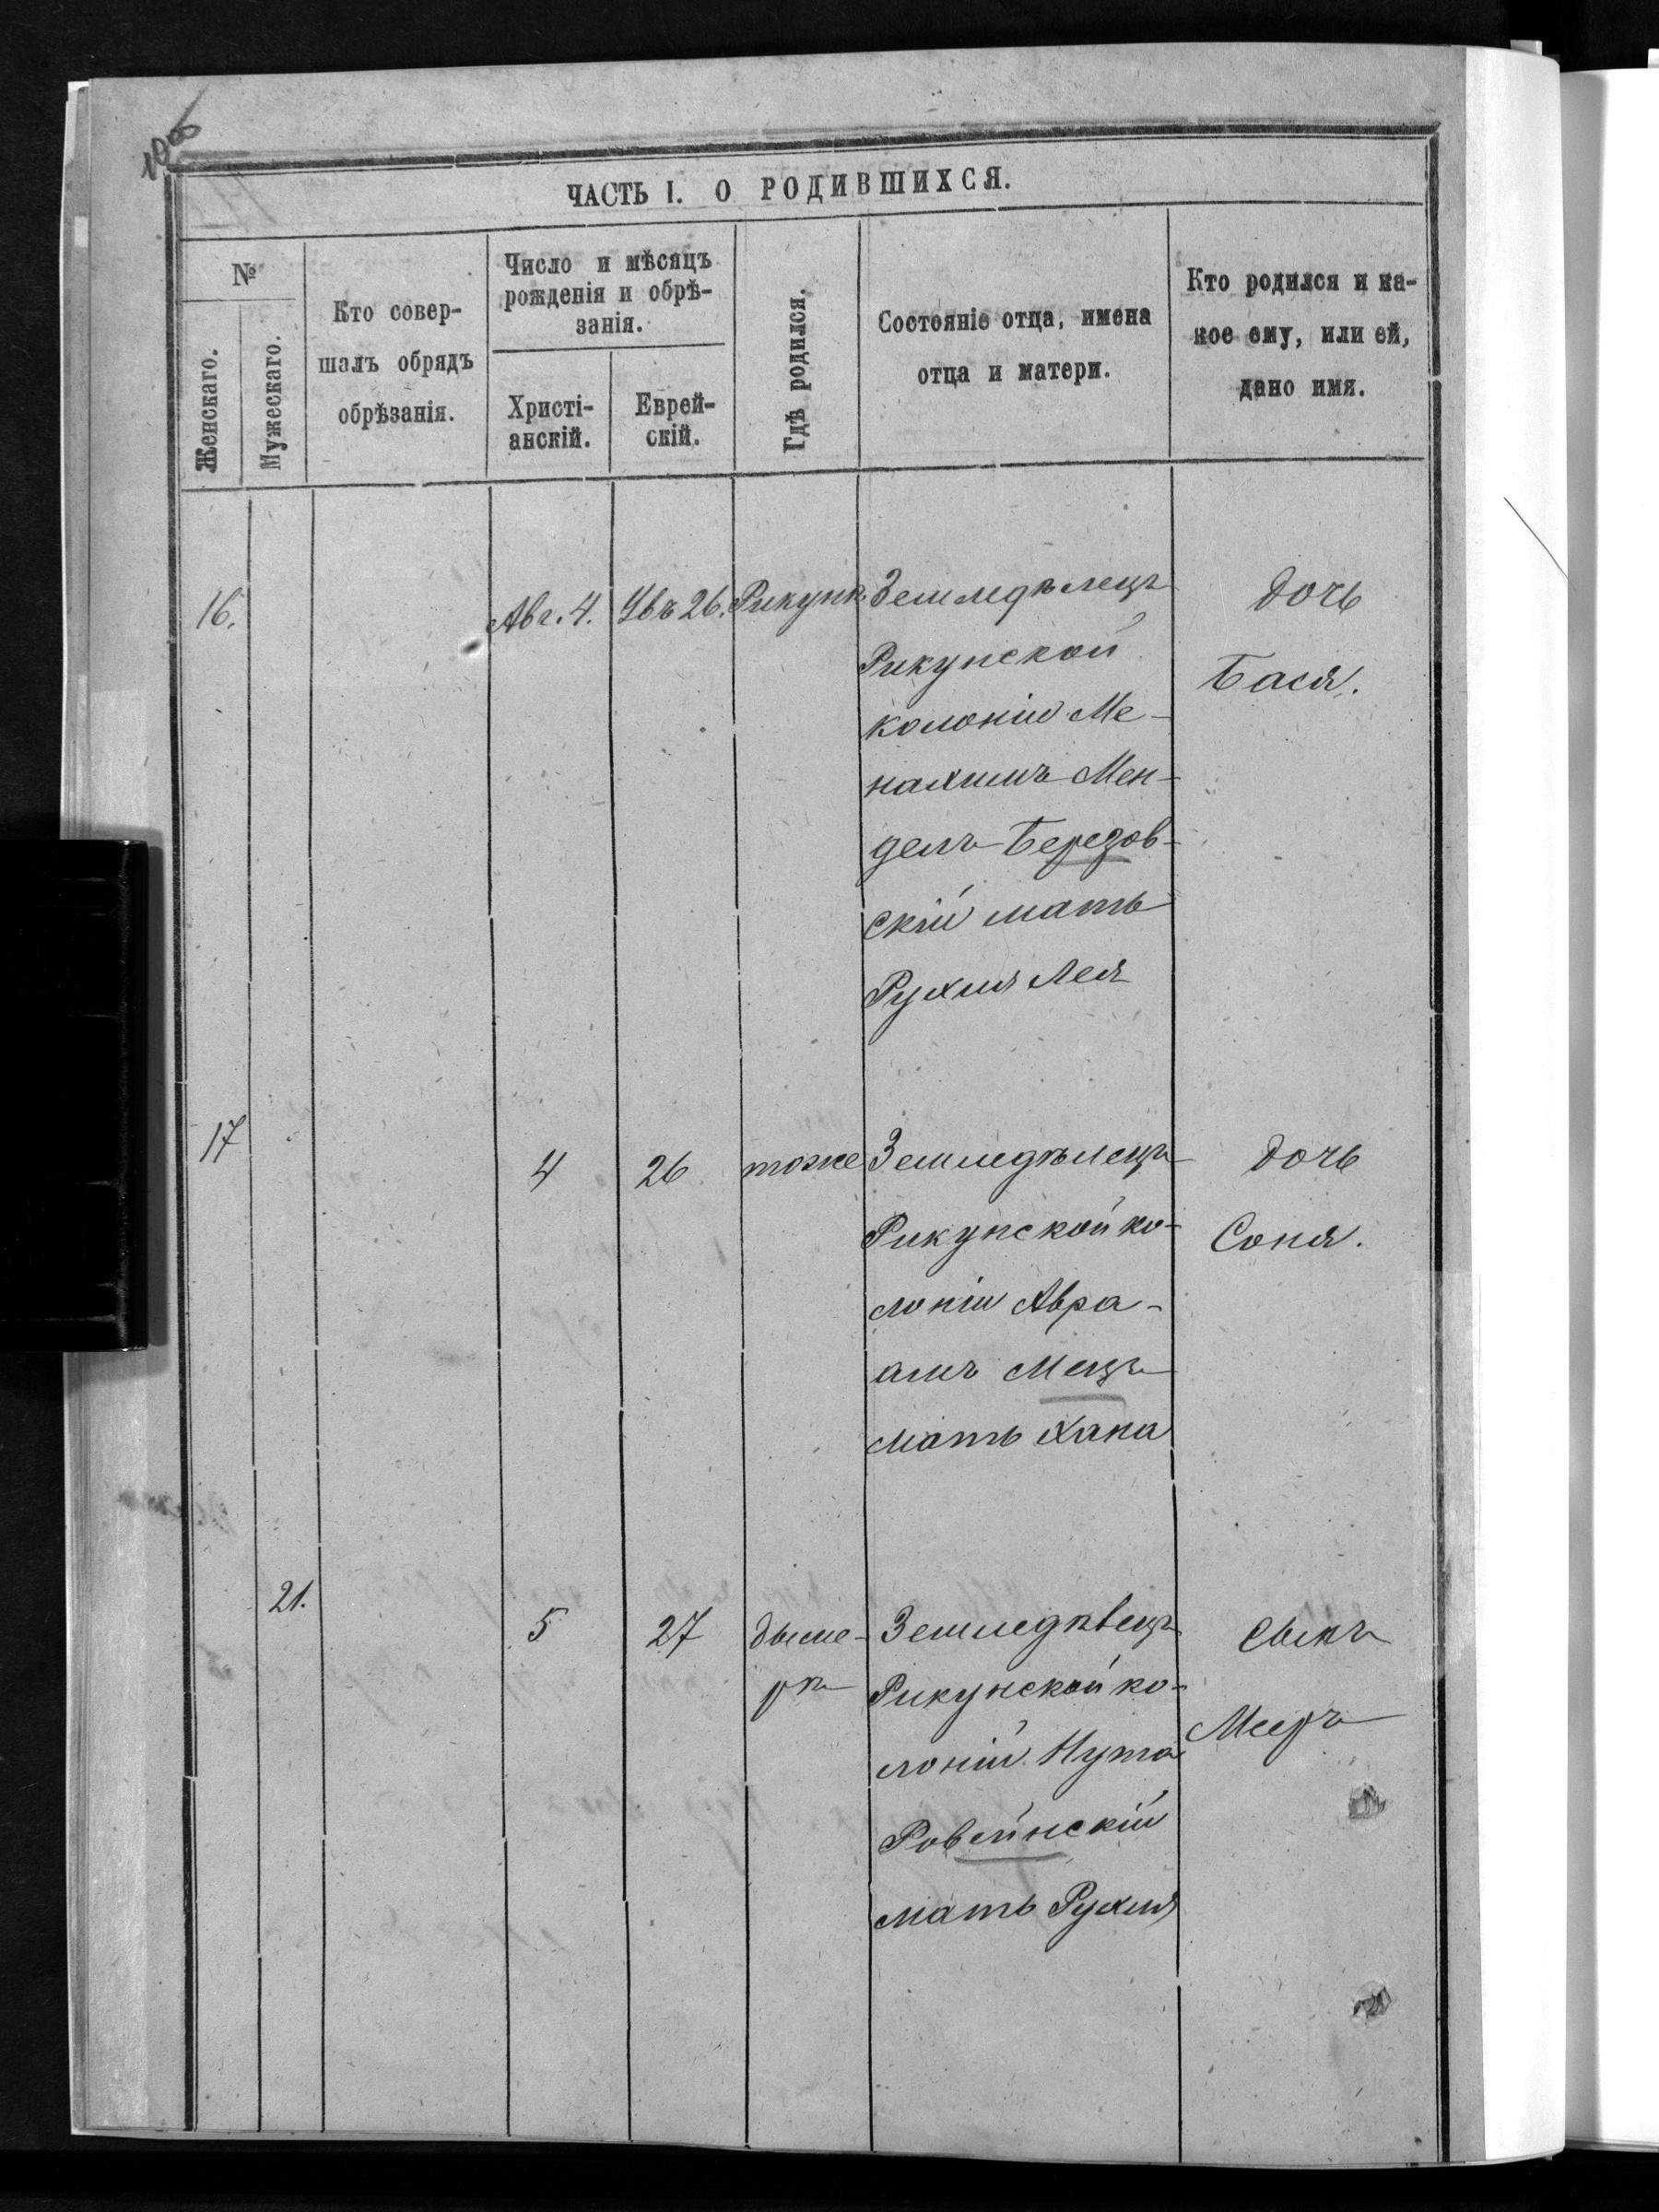 ЧАСТЬ I. О РОДИВШИХСЯ.
№
Женскаго.
Мужескаго.
Кто совер-
шалъ обрядъ
обрѣзанія.
Число и мѣсяцъ
рожденія и обрѣ-
занія.
Христі-
анскій.
Еврей-
скій.
Гдѣ родился.
Состояніе отца, имена
отца и матери.
Кто родился и ка-
кое ему, или ей,
дано имя.
16.
Авг. 4.
Увъ 26.
Рикунѣ
Земледѣлецъ
Рикунской
колоніи Ме-
нахимъ Мен-
дель Березов-
скій мать
Рухля Лея
дочь
Бася.
17
4
26
тоже
Земледѣлецъ
Рикунской ко-
лоніи Авра-
амъ Мецъ
мать Хана
дочь
Соня.
21.
5
27
Земледѣвецъ
Рикунской ко-
лоніи Нута
Ровейнскій
мать Рухля
сынъ
Мееръ